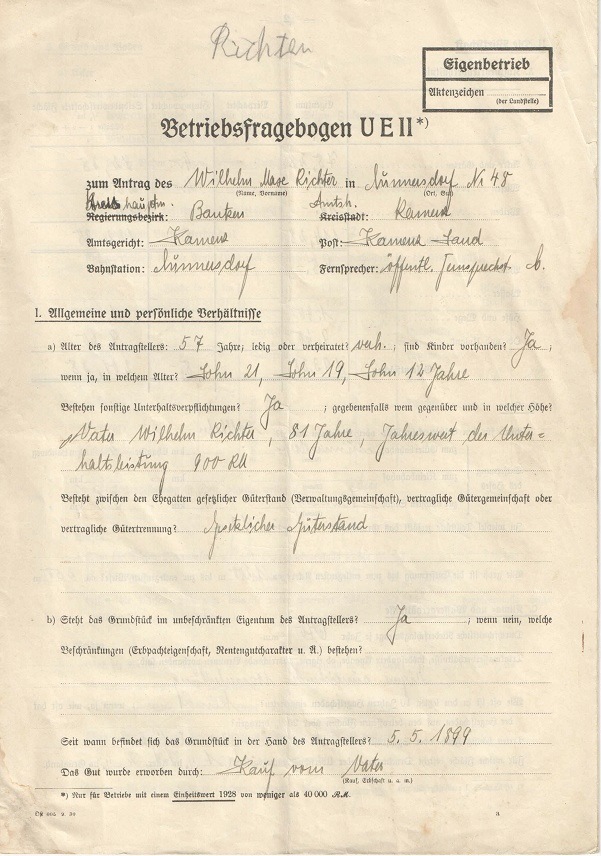 Richter
Eigenbetrieb
Aktenzeichen
(der Landstelle)
Betriebsfragebogen U E II *)
zum Antrag des Wilhelm Richter in Nr 48
(Name, Vorname) (Ort, Gut)
Kreishauptm. Amtsh.
Regierungsbezirk: Bautzen Kreisstadt: Kamenz
Amtsgericht: Kamenz Post: Kamenz Land
Bahnstation: Fernsprecher: öffentl. Fernsprechst.
I. Allgemeine und persönliche Verhältnisse
a) Alter des Antragstellers: 57 Jahre; ledig oder verheiratet? verh. ; sind Kinder vorhanden? Ja ;
wenn ja, in welchem Alter? Sohn 21, Sohn 19, Sohn 12 Jahre
Bestehen sonstige Unterhaltsverpflichtungen? Ja ; gegebenenfalls wem gegenüber und in welcher Höhe?
Vater Wilhelm Richter, 81 Jahre, Jahreswert der Unter-
haltsleistung 900 RM
Besteht zwischen den Ehegatten gesetzlicher Güterstand (Verwaltungsgemeinschaft), vertragliche Gütergemeinschaft oder
vertragliche Gütertrennung? Gesetzlicher Güterstand
b) Steht das Grundstück im unbeschränkten Eigentum des Antragstellers? Ja ; wenn nein, welche
Beschränkungen (Erbpachteigenschaft, Rentengutcharakter u. A.) bestehen?
Seit wann befindet sich das Grundstück in der Hand des Antragstellers? 5. 5. 1899
Das Gut wurde erworben durch: Kauf vom Vater
(Kauf, Erbschaft u. a. m.)
*) Nur für Betriebe mit einem Einheitswert 1928 von weniger als 40 000 RM.
3